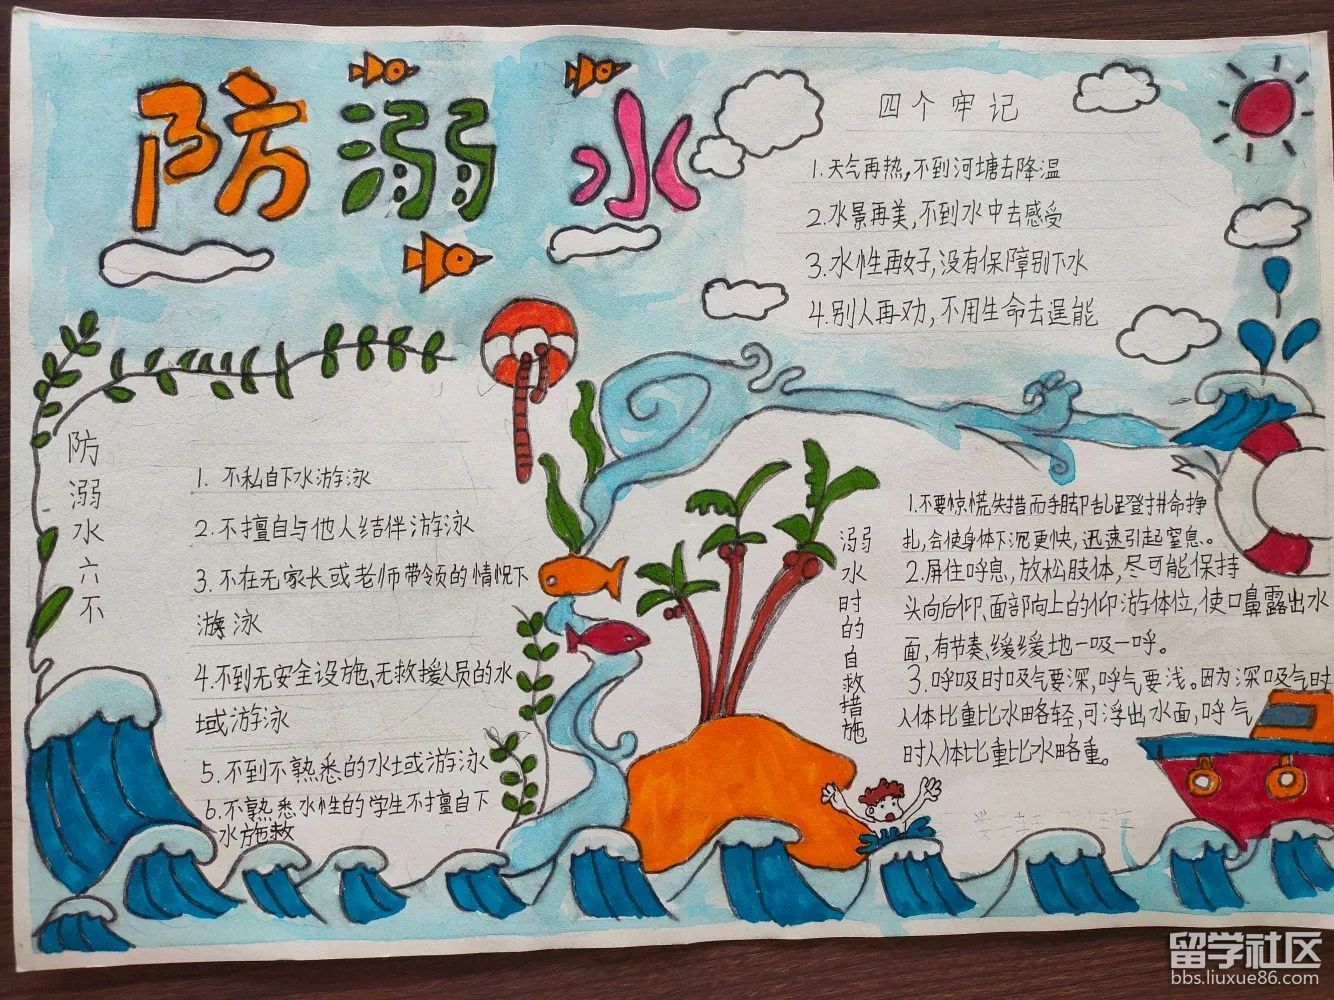 防溺水
四个牢记
1.天气再热,不到河塘去降温
2.水景再美,不到水中去感受
3.水性再好,没有保障别下水
4.别人再劝,不用生命去逞能
防溺水六不
1. 不私自下水游泳
2.不擅自与他人结伴游泳
3.不在无家长或老师带领的情况下
游泳
4.不到无安全设施、无救援人员的水
域游泳
5.不到不熟悉的水域游泳
6.不熟悉水性的学生不擅自下
水施救
溺水时的自救措施
1.不要惊慌失措而手脚乱蹬拼命挣
扎,会使身体下沉更快,迅速引起窒息。
2.屏住呼息,放松肢体,尽可能保持
头向后仰,面部向上的仰游体位,使口鼻露出水
面,有节奏、缓缓地一吸一呼。
3.呼吸时吸气要深,呼气要浅。因为深吸气时
人体比重比水略轻,可浮出水面,呼气
时人体比重比水略重。
留学社区
bbs.liuxue86.com